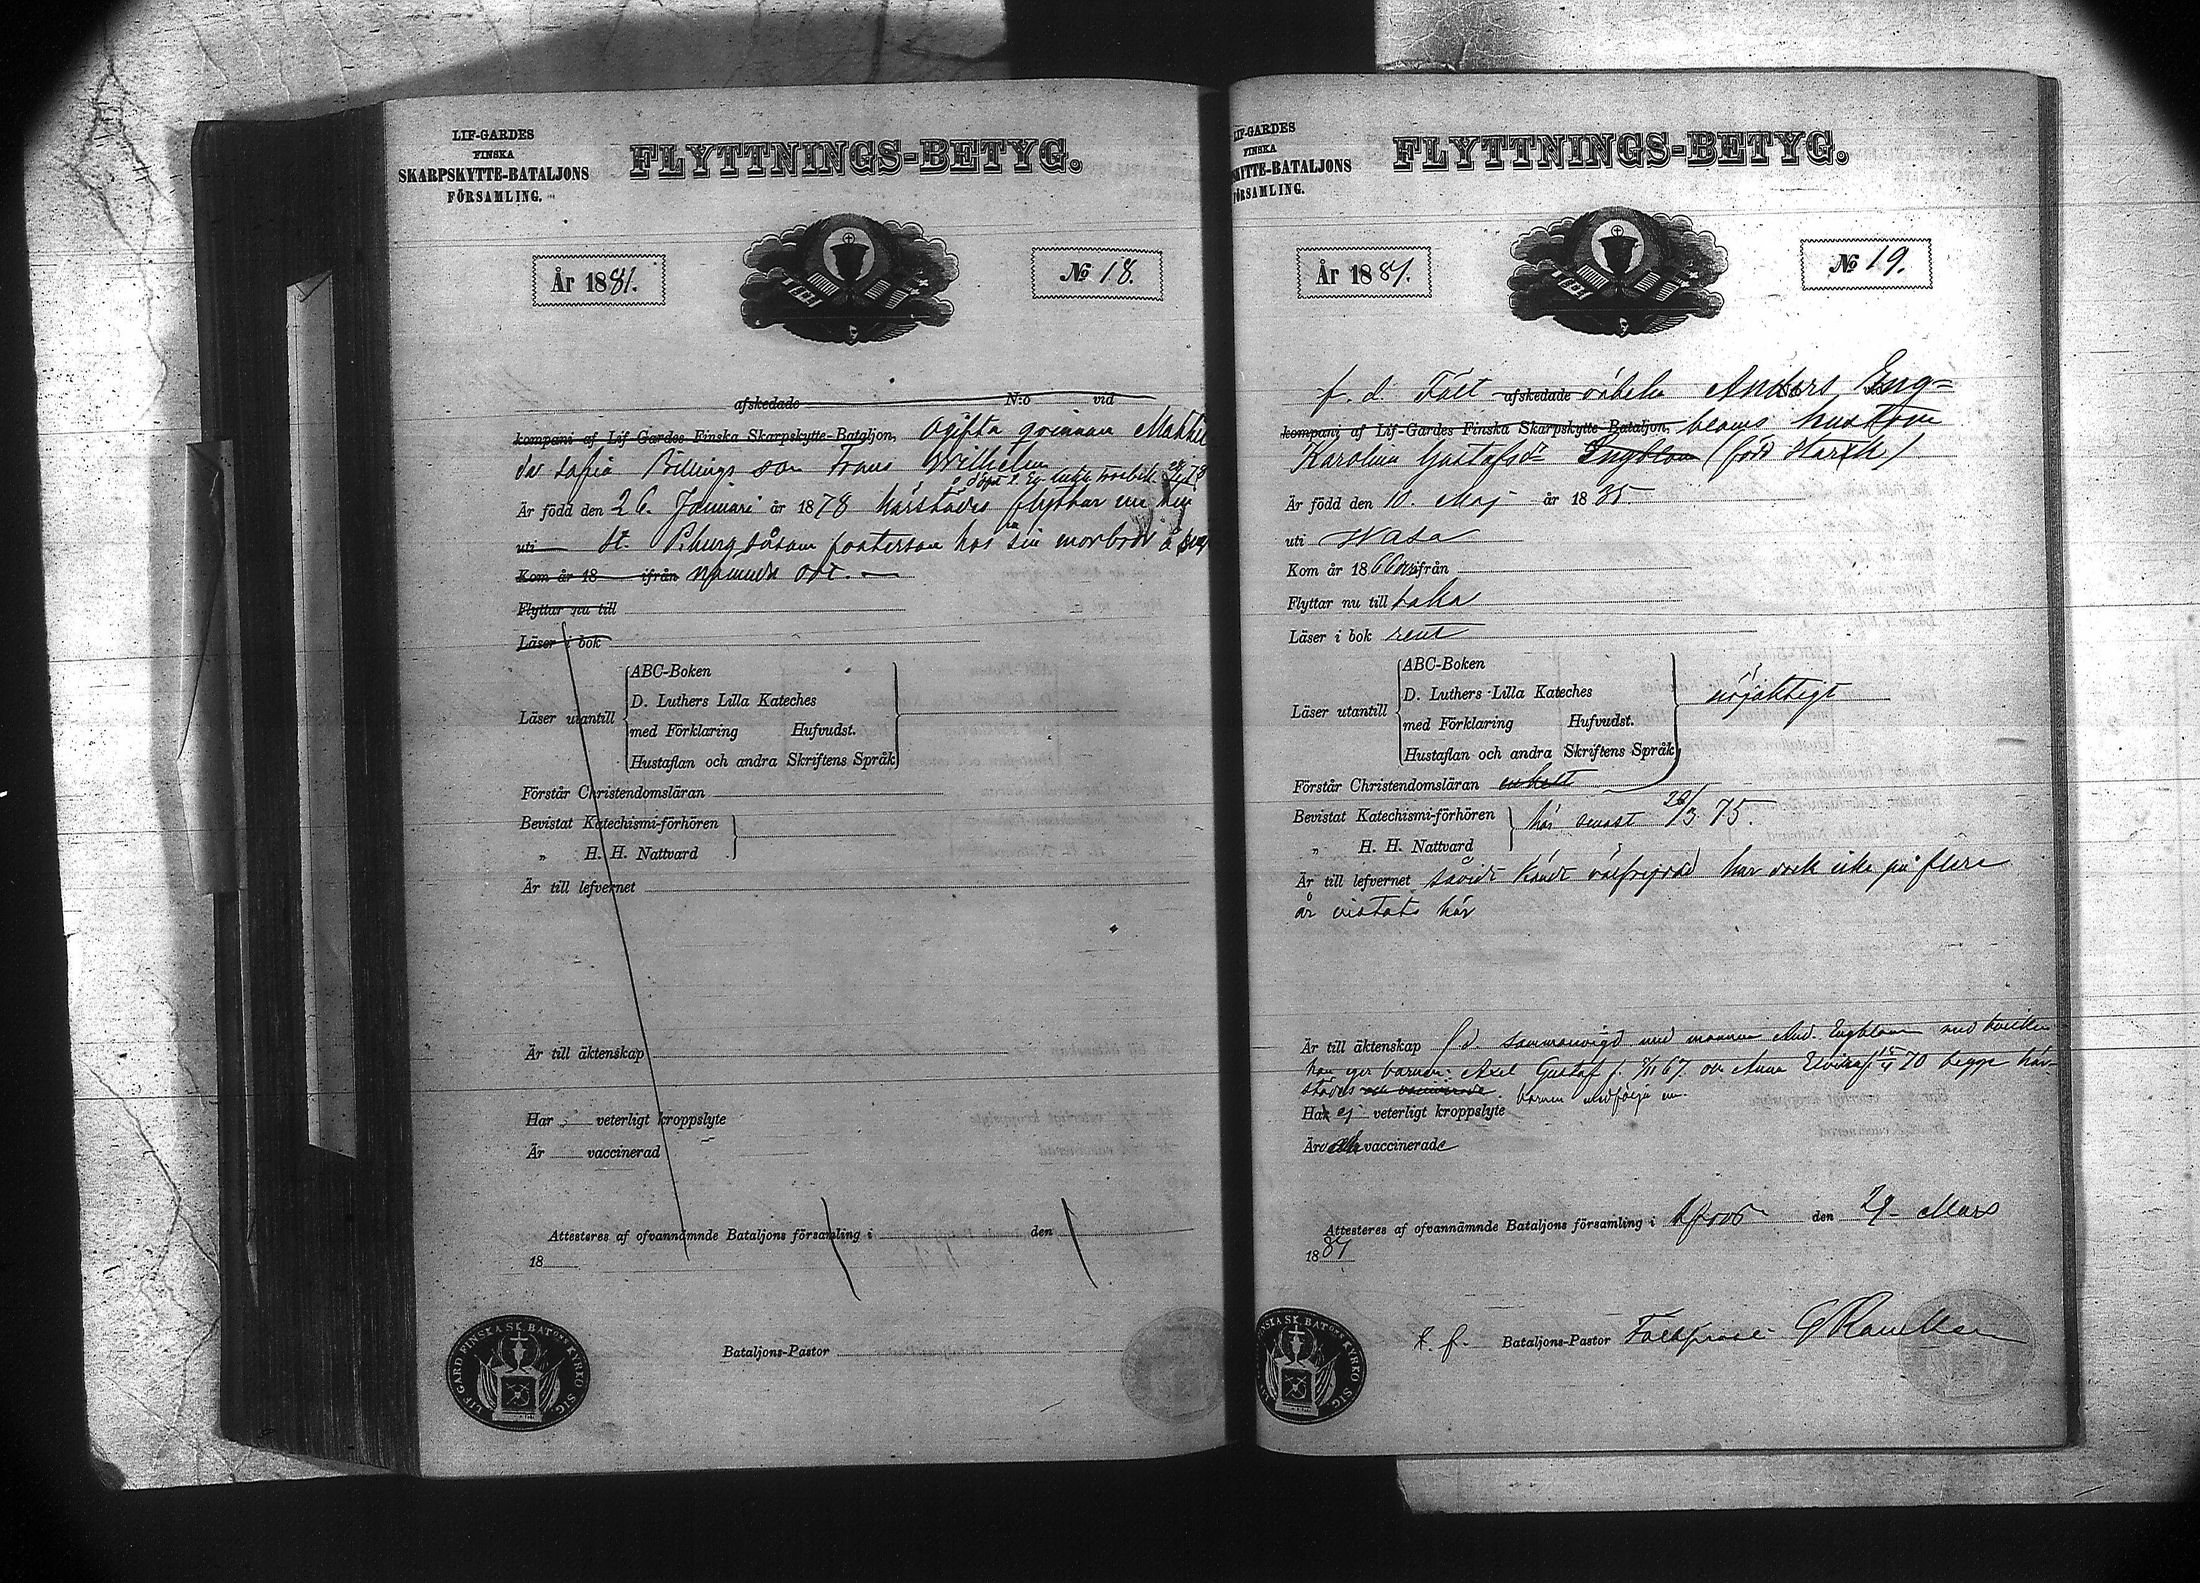 LIF-GARDES
FINSKA
SKARPSKYTTE-BATALJONS
FÖRSAMLING.
FLYTTNINGS-BETYG.
År 1881.
№ 18.
afskedade N:o vid
kompani af Lif-Gardes Finska Skarpskytte-Bataljon, Ogifta qvinnan Mathil
da Sofia Billings son Frans Wilhelm
Är född den 26. Januari år 1878 härstädes flyttar nu
uti St. P.burg såsom fosterson hos sin morbror å
Kom år 18 ifrån nämnda ort.
Flyttar nu till
Läser i bok
ABC-Boken
D. Luthers Lilla Kateches
Läser utantill
med Förklaring Hufvudst.
Hustaflan och andra Skriftens Språk
Förstår Christendomsläran
Bevistat Katechismi-förhören
„ H. H. Nattvard
Är till lefvernet
Är till äktenskap
Har veterligt kroppslyte
Är vaccinerad
Attesteras af ofvannämnde Bataljons församling i den
18
Bataljons-Pastor
LIF GARD FINSKA SK. BAT:ONS KYRKO SIG.
LIF-GARDES
FINSKA
SKYTTE-BATALJONS
FÖRSAMLING.
FLYTTNINGS-BETYG.
År 1881.
№ 19.
f. d. Fält afskedade väbeln Anders Eng=
kompani af Lif-Gardes Finska Skarpskytte-Bataljon, bloms hustru
Karolina Gustafsdr Engblom (född Stark)
Är född den 10. Maj år 1835
uti Wasa
Kom år 1866 ifrån
Flyttar nu till
Läser i bok rent
ABC-Boken
D. Luthers Lilla Kateches
Läser utantill nöjaktigt
med Förklaring Hufvudst.
Hustaflan och andra Skriftens Språk
Förstår Christendomsläran enkelt
Bevistat Katechismi-förhören här senast /3 75.
„ H. H. Nattvard
Är till lefvernet såvidt kändt välfrejdad har dock icke på flere
år vistats här
Är till äktenskap d. sammanvigd med mannen And. Engblom med hvilken
hon eger barnen: Axel Gustaf f. 67. och Anna Elvira f. 70 begge här-
städes barnen medfölja nu.
Har ej veterligt kroppslyte
Är vaccinerade
Attesteras af ofvannämnde Bataljons församling i H:fors den 29 Mars
1881
t. f. Bataljons-Pastor
SKA SK. BAT:ONS KYRKO SIG.